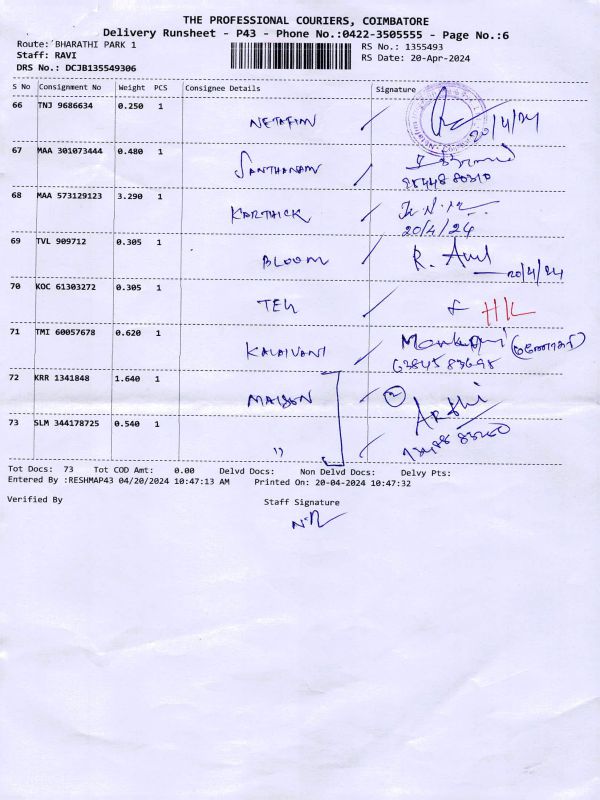 THE PROFESSIONAL COURIERS, COIMBATORE
Delivery Runsheet - P43 - Phone No.:0422-3505555 - Page No.:6
Route: BHARATHI PARK 1 RS No.: 1355493
Staff: RAVI RS Date: 20-Apr-2024
DRS No.: DCJB135549306
S No Consignment No Weight PCS Consignee Details Signature
66 TNJ 9686634 0.250 1 NETAFIM 20/4/24
67 MAA 301073444 0.480 1 SANTHANAM
68 MAA 573129123 3.290 1 KARTHICK
20/4/24
69 TVL 909712 0.305 1 BLOOM R. Anul
20/4/24
70 KOC 61303272 0.305 1 TEK HK
71 TMI 60057678 0.620 1 KALAIVANI
63845 83698
72 KRR 1341848 1.640 1 MAISON 2 ARSHI
73 SLM 344178725 0.540 1 "
Tot Docs: 73 Tot COD Amt: 0.00 Delvd Docs: Non Delvd Docs: Delvy Pts:
Entered By :RESHMAP43 04/20/2024 10:47:13 AM Printed On: 20-04-2024 10:47:32
Verified By Staff Signature